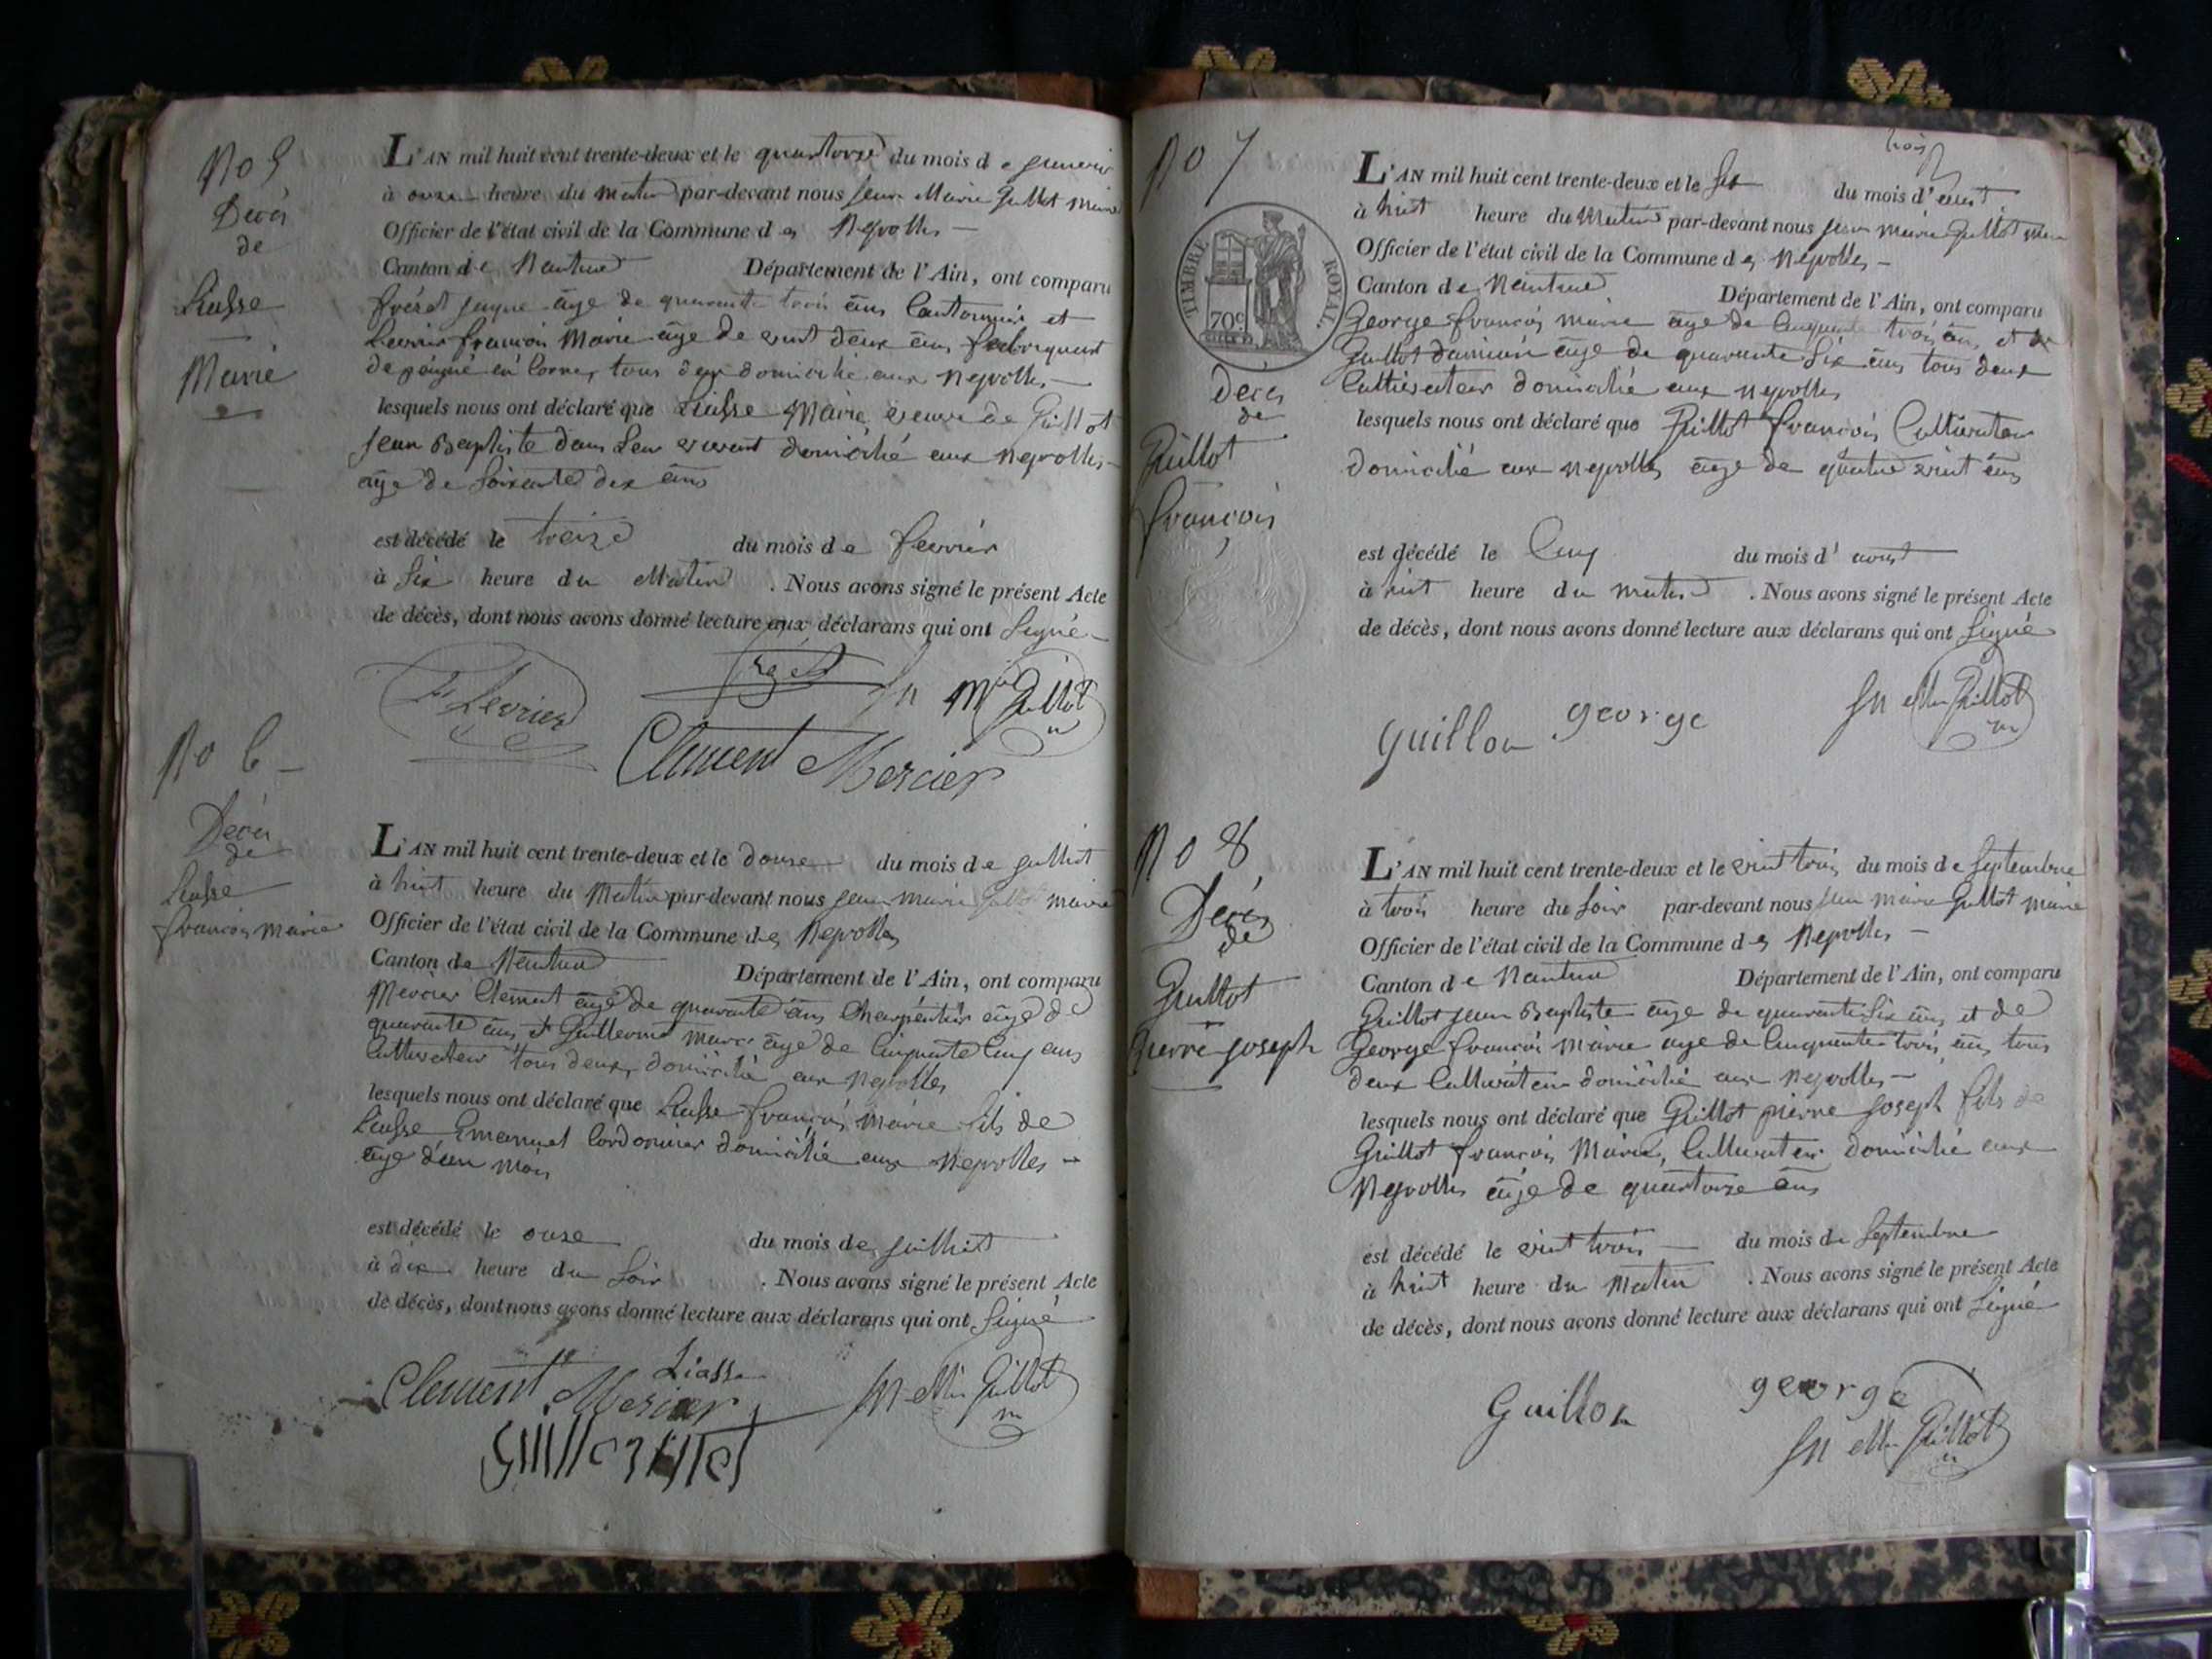 No 5
Decés
de
Liasse
Marie
L'AN mil huit cent trente-deux et le quartorze du mois de
à onze heure du matin par-devant nous jean Marie Guillot maire
Officier de l'état civil de la Commune des Neyrolles
Canton de Nantua Département de l'Ain, ont comparu
fréret jaque âge de quarante trois âns Cantonnier et
Levrier françois Marie âge de vint deux âns fabriquant
de peigne en Corne, tous deux domicilié aux neyrolles
lesquels nous ont déclaré que Liasse Marie veuve de Guillot
jean Baptiste dans Leur vivant domicilié aux neyrolles
âge de soixante dix âns
est décédé le treize du mois de fevrier
à Six heure du Matin . Nous avons signé le présent Acte
de décès, dont nous avons donné lecture aux déclarans qui ont Signé
F Levrier
jn Mie Guillot
Clement Mercier
No 6
Decés
de
Liasse
francois marie
L'AN mil huit cent trente-deux et le douze du mois de juilliet
à huit heure du Matin par-devant nous jean marie Guillot maire
Officier de l'état civil de la Commune des Neyrolles
Canton de Nantua Département de l'Ain, ont comparu
Mercier Clement âge de quarante âns Charpentier âge de
quarante âns et Guillermet marc âge de Cinquante Cinq ans
Cultivateur tous deux domicilié aux neyrolles
lesquels nous ont déclaré que Liasse françois marie fils de
Liasse Emanuel Cordonnier domicilié aux neyrolles
âge d'un mois
est décédé le onze du mois de juilliet
à dix heure du Soir . Nous avons signé le présent Acte
de décès, dont nous avons donné lecture aux déclarans qui ont Signé
Liasse
Clement Mercier jn Mie Guillot
Guillermet
trois
No 7
TIMBRE ROYAL
70c
Decés
de
Guillot
françois
L'AN mil huit cent trente-deux et le Six du mois d'aust
à huit heure du Matin par-devant nous jean marie Guillot maire
Officier de l'état civil de la Commune des Neyrolles
Canton de Nantua Département de l'Ain, ont comparu
George françois marie âge de Cinquante trois âns et de
Guillot âge de quarante Six âns tous deux
Cultivateur domicilié aux neyrolles
lesquels nous ont déclaré que Guillot françois Cultivateur
domicilié aux neyrolles âge de quatre vint âns
est décédé le Cinq du mois d'aust
à huit heure du matin . Nous avons signé le présent Acte
de décès, dont nous avons donné lecture aux déclarans qui ont Signé
george jn Mie Guillot
No 8
Decés
de
Guillot
Pierre joseph
L'AN mil huit cent trente-deux et le vint trois du mois de Septembre
à trois heure du Soir par-devant nous jean marie Guillot maire
Officier de l'état civil de la Commune des Neyrolles
Canton de Nantua Département de l'Ain, ont comparu
Guillot jean Baptiste âge de quarante Six âns et de
George françois marie age de Cinquante trois âns tous
deux Cultivateur domicilié aux neyrolles
lesquels nous ont déclaré que Guillot pierre joseph fils de
Guillot françois Marie, Cultivateur domicilié aux
Neyrolles âge de quartorze âns
est décédé le vint trois du mois de Septembre
à huit heure du Matin . Nous avons signé le présent Acte
de décès, dont nous avons donné lecture aux déclarans qui ont Signé
george
jn Mie Guillot